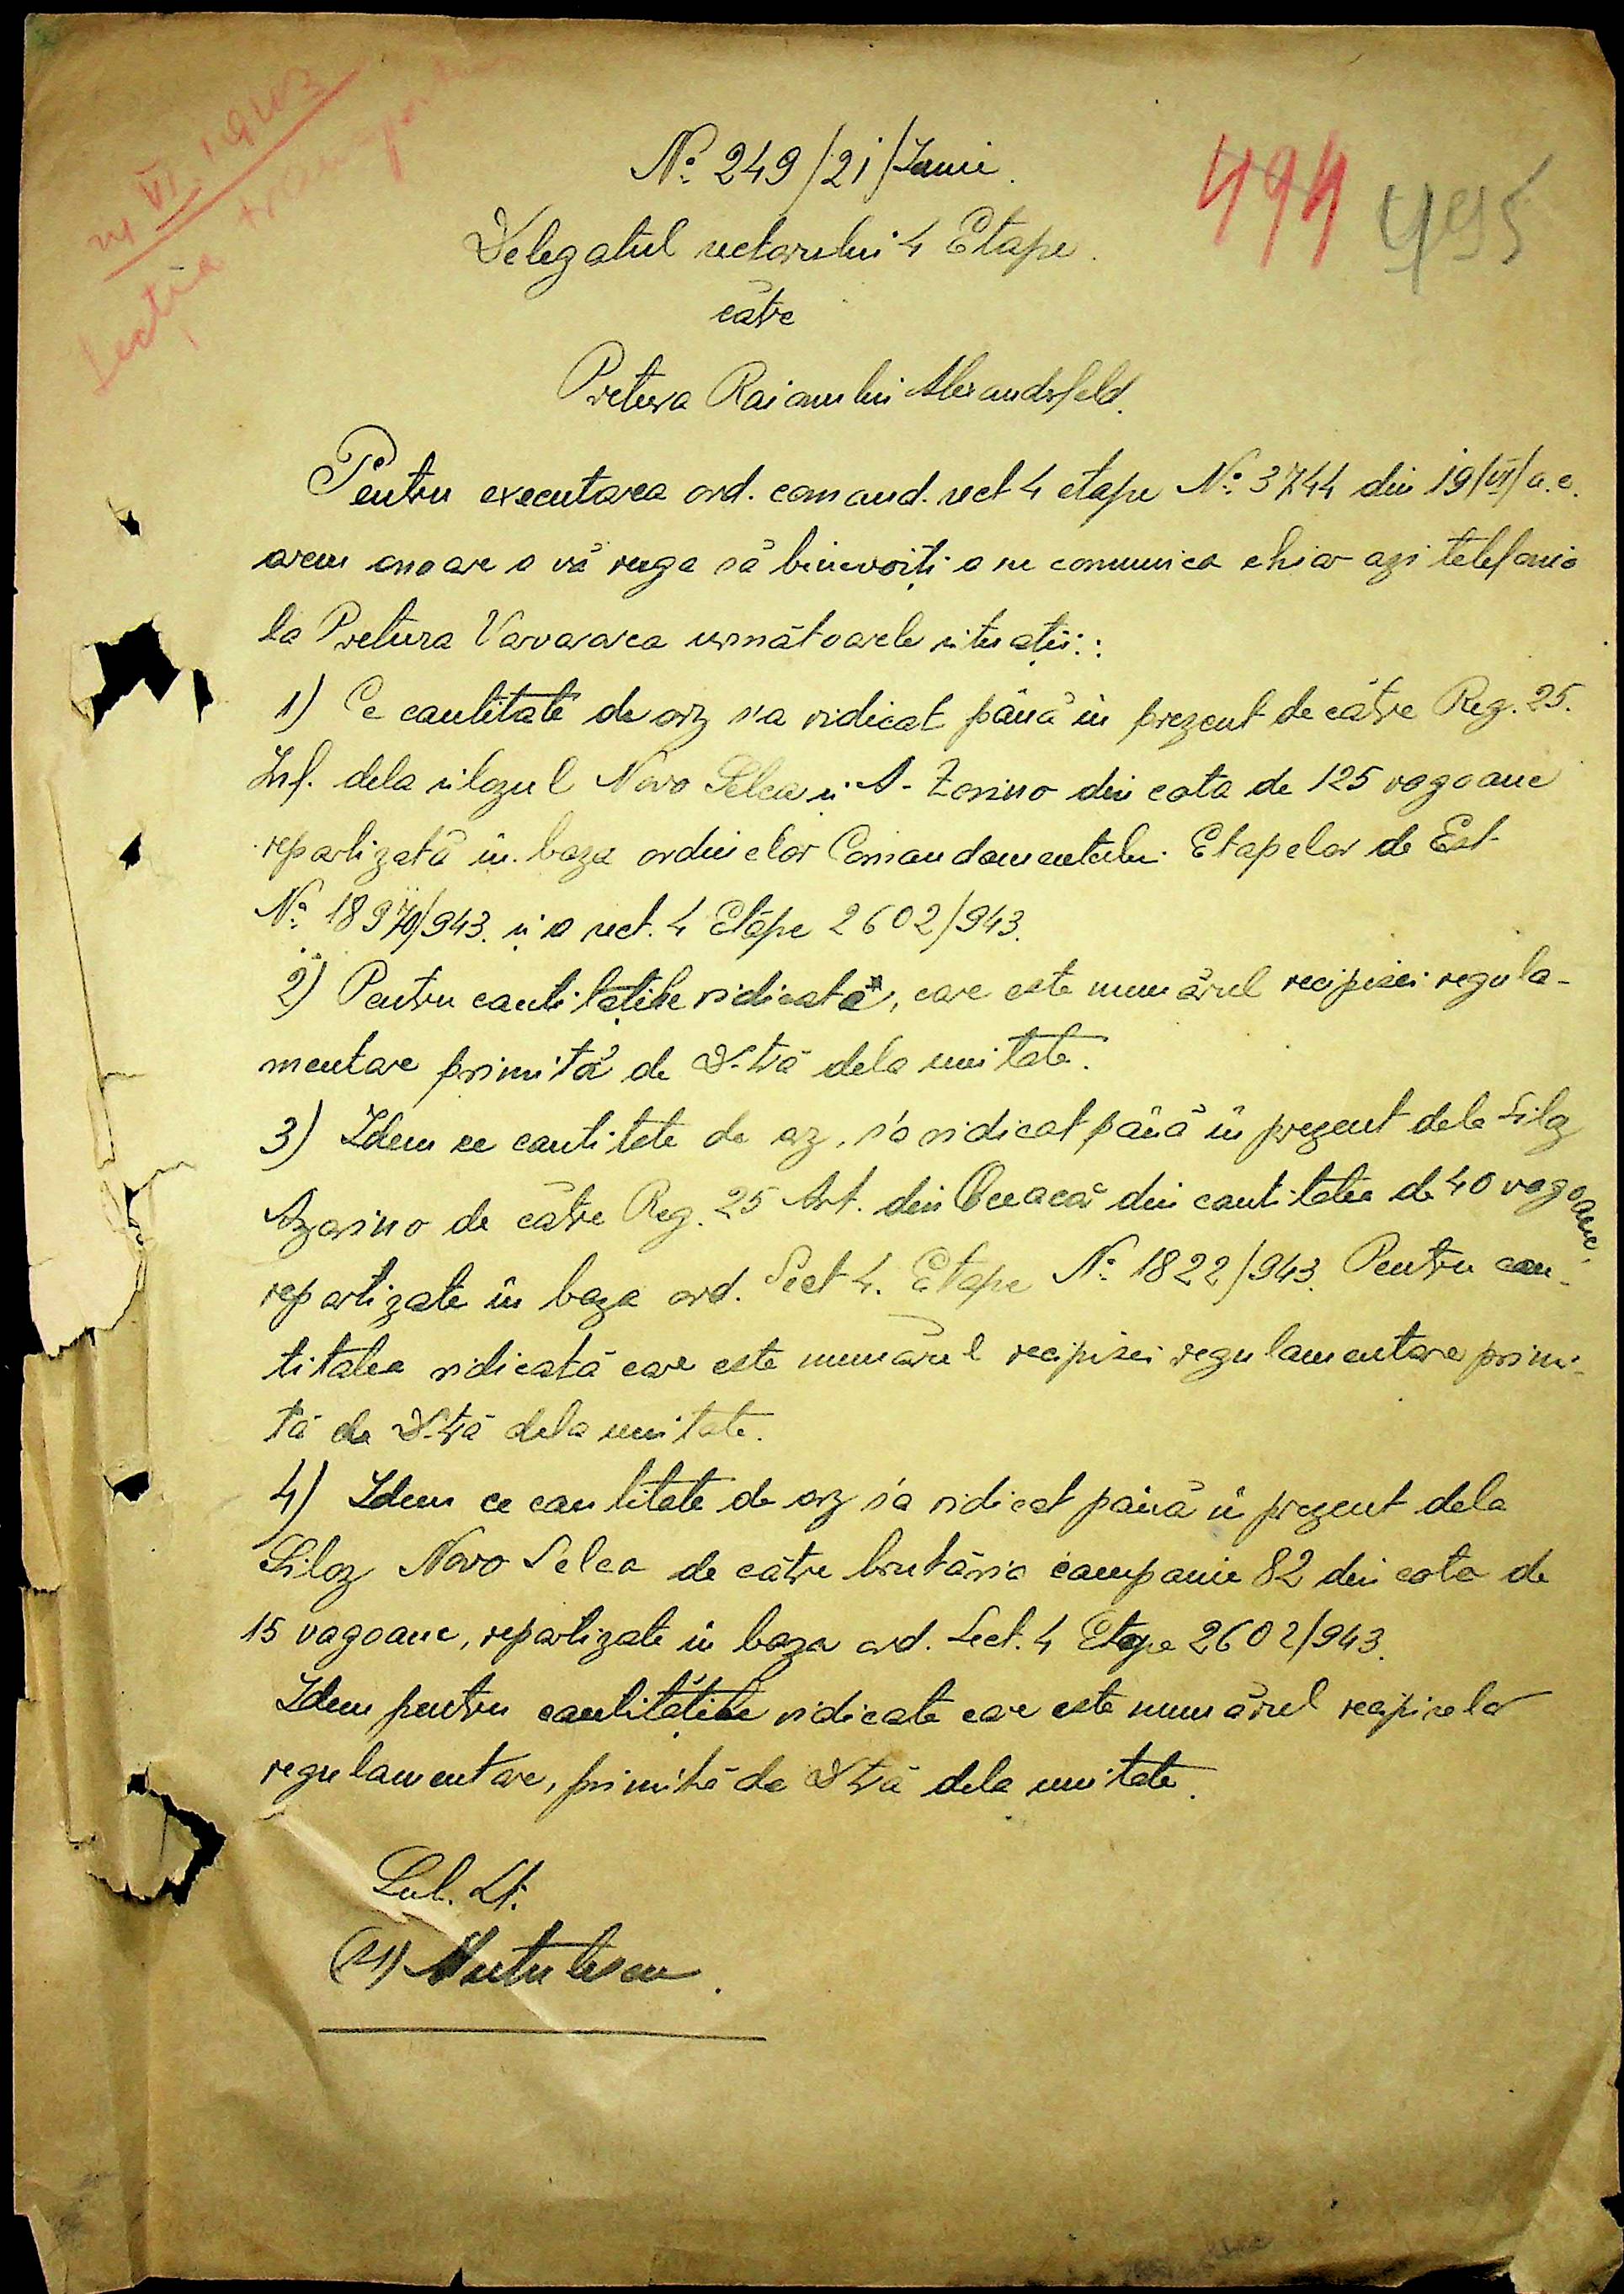 VI. 1943
Secția transporturi
494 495
No. 249/21/Iunie.
Delegatul sectorului 4 Etape.
către
Pretura Raionului Alexandrfeld.
Pentru executarea ord. comand. sect 4 etape No. 3744 din 19/VI/a.c.
avem onoare a vă ruga să binevoiți a ne comunica chiar azi telefonic
la Pretura Varvarovca următoarele situații:
1) Ce cantitate de orz s'a ridicat până în prezent de către Reg. 25.
Inf. dela silozul Novo Selca și din cota de 125 vagoane
repartizată în baza ordinelor Comandamentului Etapelor de Est
No. 18970/943. și a sect. 4 Etape 2602/943.
2) Pentru cantitatile ridicată, care este numărul recipisei regula-
mentare primită de D-tră dela unitate.
3) Idem ce cantitate de orz, s'a ridicat până în prezent dela Siloz
de către Reg. 25 Art. din Oceacăv din cantitatea de 40 vagoane,
repartizate în baza ord. Sect 4. Etape No. 1822/943. Pentru can-
titatea ridicată care este numărul recipisei regulamentare primi-
tă de D-tră dela unitate.
4) Idem ce cantitate de orz s'a ridicat până în prezent dela
Siloz Novo Selca de către brutăria companie 82 din cota de
15 vagoane, repartizate în baza ord. Sect. 4 Etape 2602/943.
Idem pentru cantitățile ridicate care este numărul recipiselor
regulamentare, primită de D-tră dela unitate.
Sub. Lt.